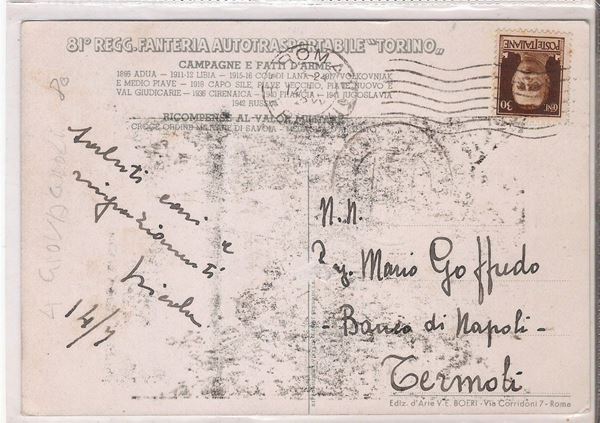 81º REGG. FANTERIA AUTOTRASPORTABILE "TORINO"
CAMPAGNE E FATTI D'ARME
1895 ADUA — 1911-12 LIBIA — 1915-16 COL DI LANA - 1917 VOLKOVNIAK
E MEDIO PIAVE — 1918 CAPO SILE, PIAVE VECCHIO, PIAVE NUOVO E
VAL GIUDICARIE — 1936 CIRENAICA — 1940 FRANCIA — 1941 JUGOSLAVIA
1942 RUSSIA
RICOMPENSE AL VALOR MILITARE
CROCE ORDINE MILITARE DI SAVOIA
ROMA
POSTE ITALIANE
30 CENT
saluti cari e
ringraziamenti
14/7
N. N.
Mario Goffredo
- Banco di Napoli -
Termoli
Ediz. d'Arte V. E. BOERI - Via Corridoni 7 - Roma